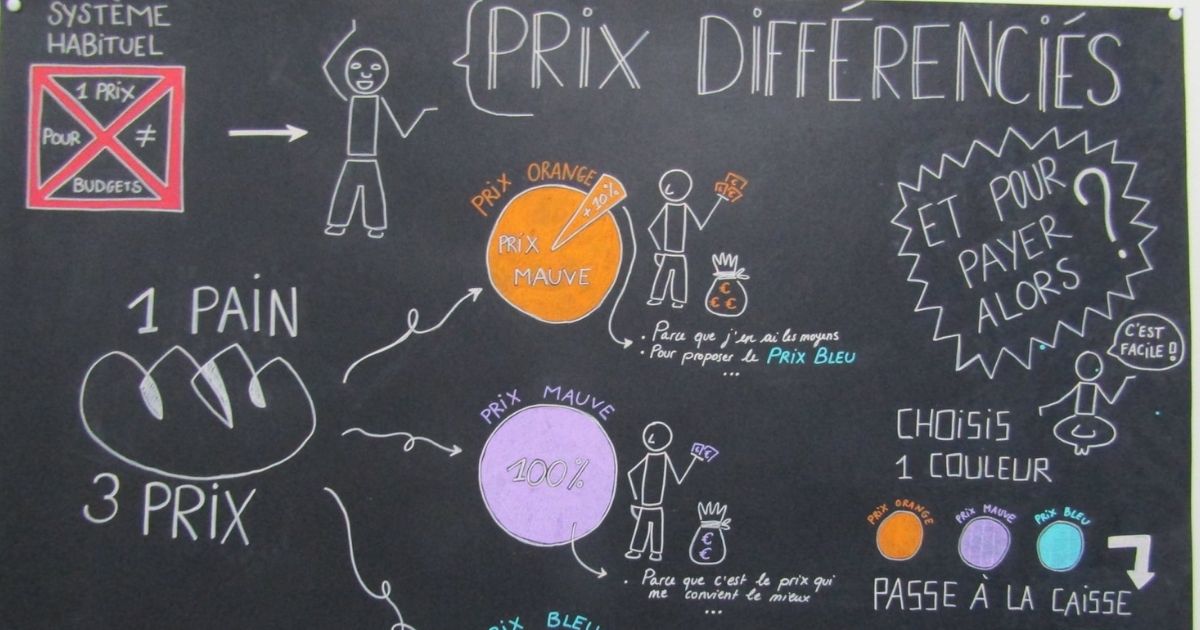 SYSTÈME
HABITUEL
1 PRIX
POUR ≠
BUDGETS
PRIX DIFFÉRENCIÉS
1 PAIN
3 PRIX
PRIX ORANGE
+10%
PRIX
MAUVE
€
€
€
€ €
. Parce que j'en ai les moyens
. Pour proposer le PRIX BLEU
...
PRIX MAUVE
100%
€ €
€
€
. Parce que c'est le prix qui
me convient le mieux
...
PRIX BLEU
ET POUR
PAYER
ALORS ?
C'EST
FACILE !
CHOISIS
1 COULEUR
PRIX ORANGE
PRIX MAUVE
PRIX BLEU
PASSE À LA CAISSE